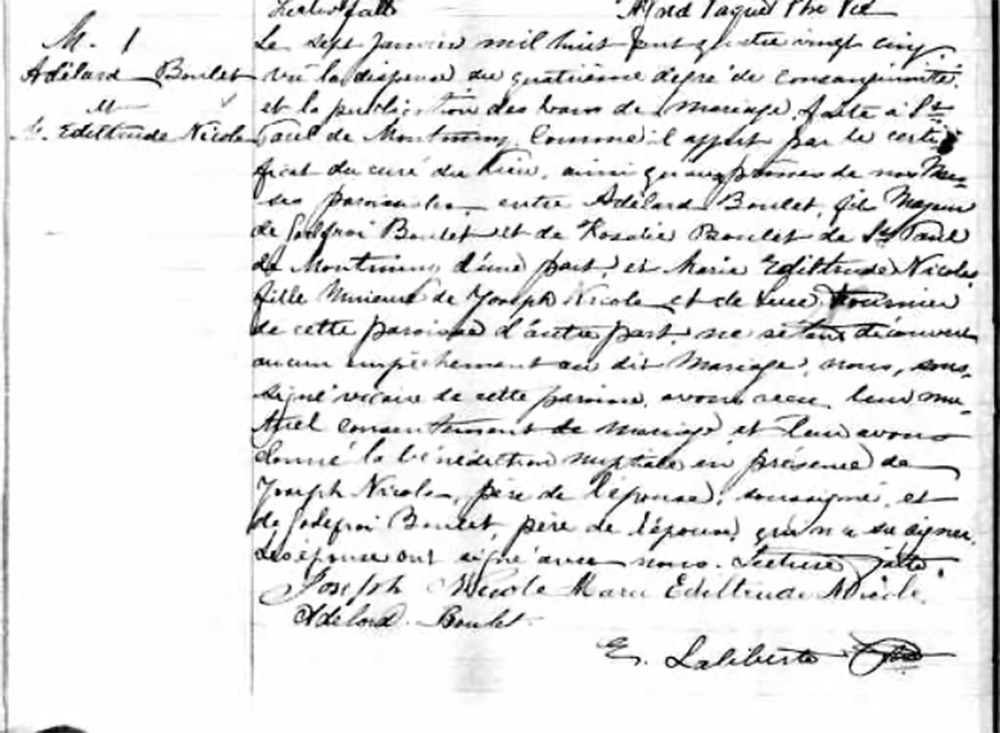 Lecture faite
M. 1
Adélard Boulet
et
M. Ediltrude Nicole
Le sept Janvier mil huit cent quatre vingt cinq,
vu la dispense du quatrième degré de consanguinité
et la publication des bans de mariage faite à St
Paul de Montminy, comme il appert par le certi
ficat du curé du lieu, ainsi qu'aux prônes de nos Mes-
ses paroissiales, entre Adélard Boulet, fils Majeur
de Godfroi Boulet et de Rosalie Boulet de St Paul
de Montminy d'une part, et Marie Ediltrude Nicole
fille Mineure de Joseph Nicole et de Luce Fournier
de cette paroisse d'autre part, ne s'étant découvert
aucun empêchement au dit Mariage, nous, sous-
signé vicaire de cette paroisse, avons reçu leur mu-
tuel consentement de mariage et leur avons
donné la bénédiction nuptiale en présence de
Joseph Nicole, père de l'épouse, soussigné, et
de Godefroi Boulet, père de l'époux, qui n'a su signer.
Les époux ont signé avec nous. Lecture faite.
Joseph Nicole Marie Ediltrude Nicole
Adelard Boulet
E. Laliberté Ptre